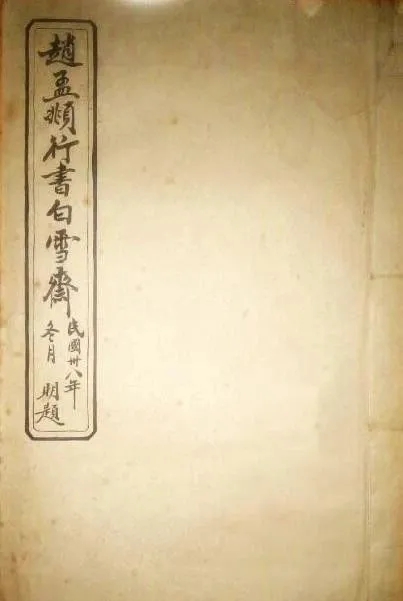 趙孟頫行書白雪齋
民國卅八年
冬月 明題